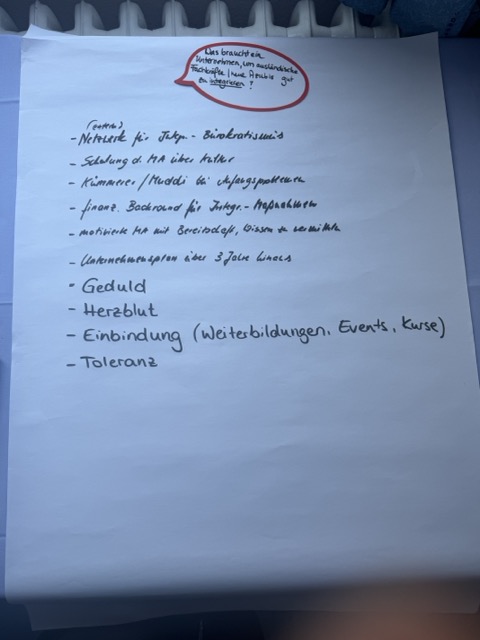 Was braucht ein
Unternehmen, um ausländische
Fachkräfte / neue Azubis gut
zu integrieren?
(extern)
- Netzwerk für Integr. - Bürokratismus
- Schulung d. MA über Kultur
- Kümmerer / Muddi bei Anfangsproblemen
- finanz. Background für Integr. - Maßnahmen
- motivierte MA mit Bereitschaft, Wissen zu vermitteln
- Unternehmensplan über 3 Jahre hinaus
- Geduld
- Herzblut
- Einbindung (Weiterbildungen, Events, Kurse)
- Toleranz